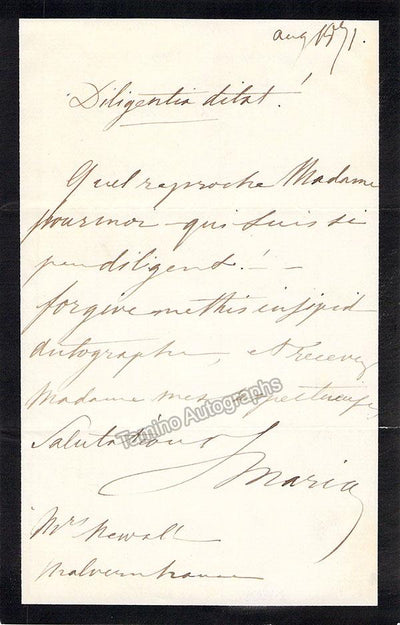 Aug 1871.
Diligentia ditat!
Quel reproche Madame
pour moi qui suis si
peu diligent! -
forgive me this insipid
autographe, et recevez
Madame mes respectueuses
Salutations
Tamino Autographs
Maria
Mrs Newall